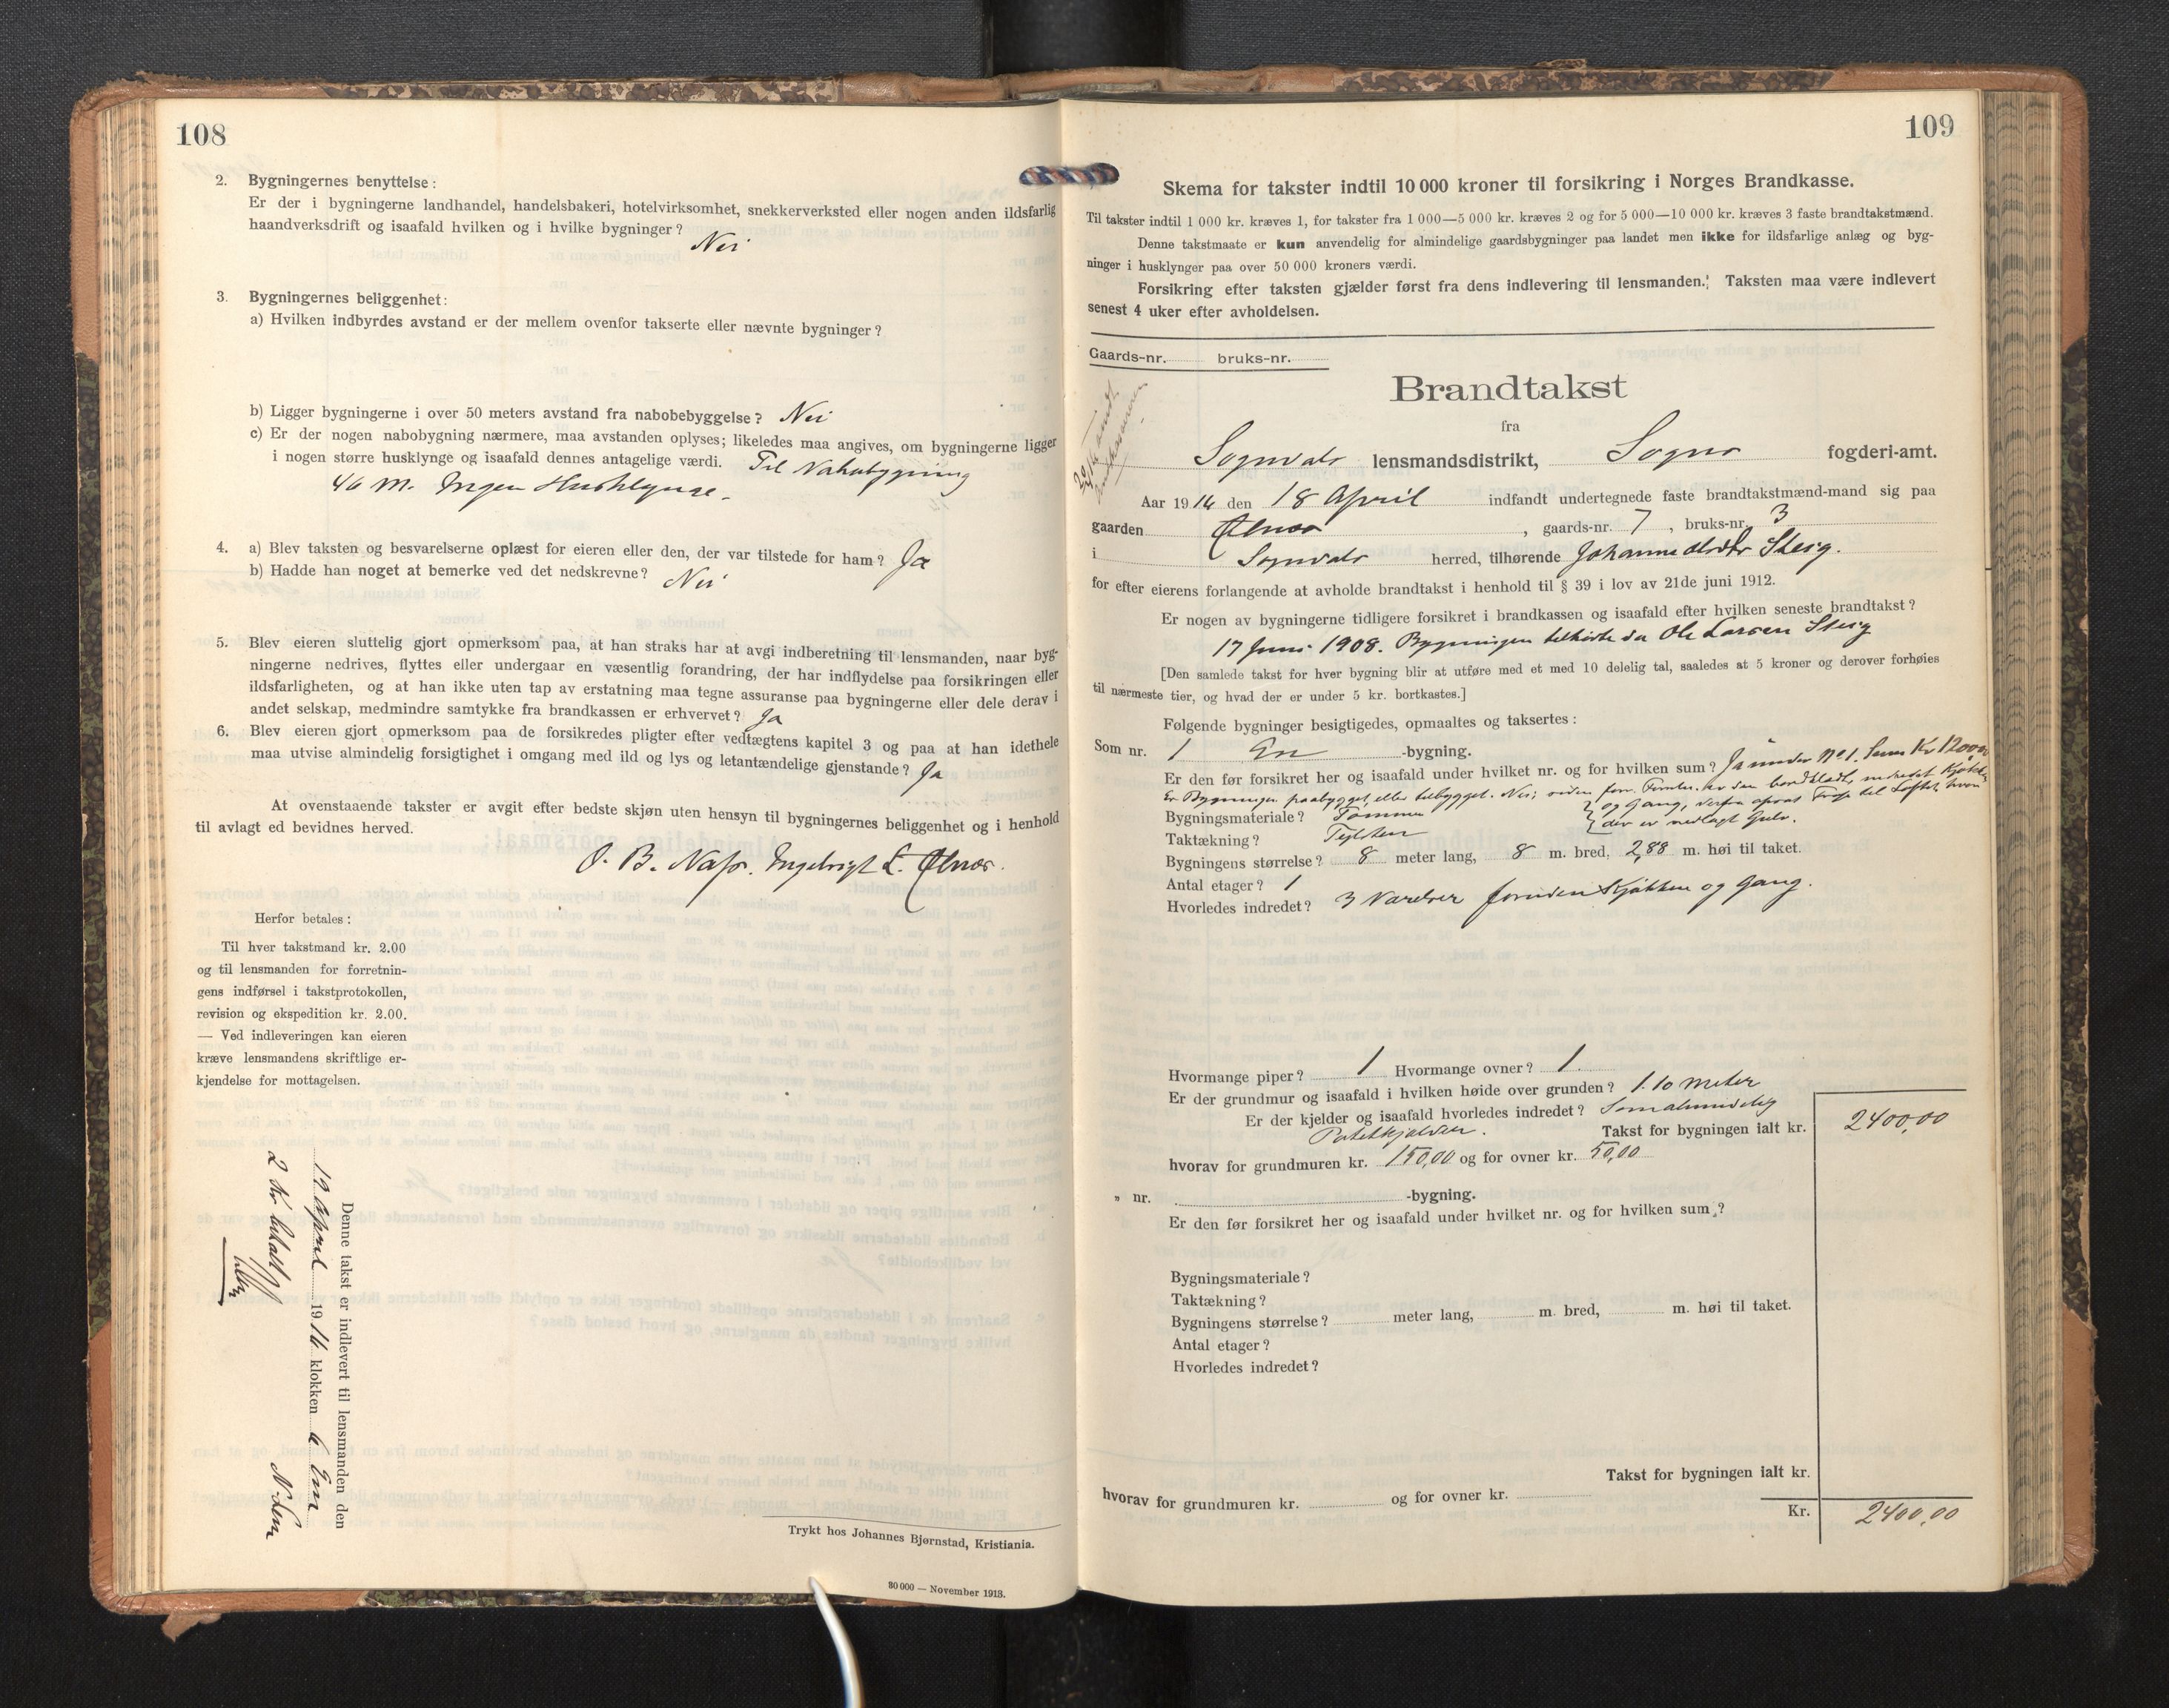 108
2. Bygningernes benyttelse:
Er der i bygningerne landhandel, handelsbakeri, hotelvirksomhet, snekkerverksted eller nogen anden ildsfarlig
haandverksdrift og isaafald hvilken og i hvilke bygninger? Nei
3. Bygningernes beliggenhet:
a) Hvilken indbyrdes avstand er der mellem ovenfor takserte eller nævnte bygninger?
b) Ligger bygningerne i over 50 meters avstand fra nabobebyggelse? Nei
c) Er der nogen nabobygning nærmere, maa avstanden oplyses; likeledes maa angives, om bygningerne ligger
i nogen større husklynge og isaafald dennes antagelige værdi. Til Nabobygning
46 M. Ingen Husklynge.
4. a) Blev taksten og besvarelserne oplæst for eieren eller den, der var tilstede for ham? Ja
b) Hadde han noget at bemerke ved det nedskrevne? Nei
5. Blev eieren sluttelig gjort opmerksom paa, at han straks har at avgi indberetning til lensmanden, naar byg-
ningerne nedrives, flyttes eller undergaar en væsentlig forandring, der har indflydelse paa forsikringen eller
ildsfarligheten, og at han ikke uten tap av erstatning maa tegne assuranse paa bygningerne eller dele derav i
andet selskap, medmindre samtykke fra brandkassen er erhvervet? Ja
6. Blev eieren gjort opmerksom paa de forsikredes pligter efter vedtægtens kapitel 3 og paa at han idethele
maa utvise almindelig forsigtighet i omgang med ild og lys og letantændelige gjenstande? Ja
At ovenstaaende takster er avgit efter bedste skjøn uten hensyn til bygningernes beliggenhet og i henhold
til avlagt ed bevidnes herved.
O. B. Nafs. Ingebrigt L.
Herfor betales:
Til hver takstmand kr. 2.00
og til lensmanden for forretnin-
gens indførsel i takstprotokollen,
revision og ekspedition kr. 2.00.
— Ved indleveringen kan eieren
kræve lensmandens skriftlige er-
kjendelse for mottagelsen.
Denne takst er indlevert til lensmanden den
19 April 1916 klokken 6 Em
2 Kr betalt
Trykt hos Johannes Bjørnstad, Kristiania.
30 000 — November 1913.
109
Skema for takster indtil 10 000 kroner til forsikring i Norges Brandkasse.
Til takster indtil 1 000 kr. kræves 1, for takster fra 1 000—5 000 kr. kræves 2 og for 5 000—10 000 kr. kræves 3 faste brandtakstmænd.
Denne takstmaate er kun anvendelig for almindelige gaardsbygninger paa landet men ikke for ildsfarlige anlæg og byg-
ninger i husklynger paa over 50 000 kroners værdi.
Forsikring efter taksten gjælder først fra dens indlevering til lensmanden. Taksten maa være indlevert
senest 4 uker efter avholdelsen.
Gaards-nr. bruks-nr.
Brandtakst
fra
Sogndals lensmandsdistrikt, Sogns fogderi-amt.
Aar 1916 den 18 April indfandt undertegnede faste brandtakstmænd-mand sig paa
gaarden , gaards-nr. 7, bruks-nr. 3
i Sogndals herred, tilhørende Steig.
for efter eierens forlangende at avholde brandtakst i henhold til § 39 i lov av 21de juni 1912.
Er nogen av bygningerne tidligere forsikret i brandkassen og isaafald efter hvilken seneste brandtakst?
17 Juni 1908. Bygningen tilhørte da Ole Larsen Steig
[Den samlede takst for hver bygning blir at utføre med et med 10 delelig tal, saaledes at 5 kroner og derover forhøies
til nærmeste tier, og hvad der er under 5 kr. bortkastes.]
Følgende bygninger besigtigedes, opmaaltes og taksertes:
Som nr. 1 En -bygning.
Er den før forsikret her og isaafald under hvilket nr. og for hvilken sum? Ja under No 1. Sum Kr 1200,00
Er Bygningen paabygget eller tilbygget. Nei; siden forr. Forretn. er den bordklædt, indredet Kjøkken
og Gang, derfra opsat Trap til Loftet, hvor
Bygningsmateriale? Tømmer der er nedlagt Gulv.
Taktækning? Teglsten
Bygningens størrelse? 8 meter lang, 8 m. bred, 2,88 m. høi til taket.
Antal etager? 1
Hvorledes indredet? 3 Værelser foruden Kjøkken og Gang.
Hvormange piper? 1 Hvormange ovner? 1.
Er der grundmur og isaafald i hvilken høide over grunden? 1.10 meter
Er der kjelder og isaafald hvorledes indredet? Som almindelig
Potetkjælder. Takst for bygningen ialt kr. 2400,00
hvorav for grundmuren kr. 150,00 og for ovner kr. 50,00
„ nr. -bygning.
Er den før forsikret her og isaafald under hvilket nr. og for hvilken sum?
Bygningsmateriale?
Taktækning?
Bygningens størrelse? meter lang, m. bred, m. høi til taket.
Antal etager?
Hvorledes indredet?
Takst for bygningen ialt kr.
hvorav for grundmuren kr. og for ovner kr.
Kr. 2400,00